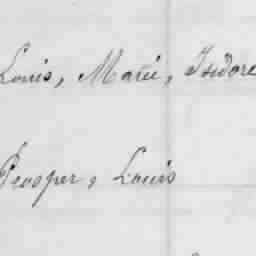 Louis, Marie, Isidore
Prosper, Louis